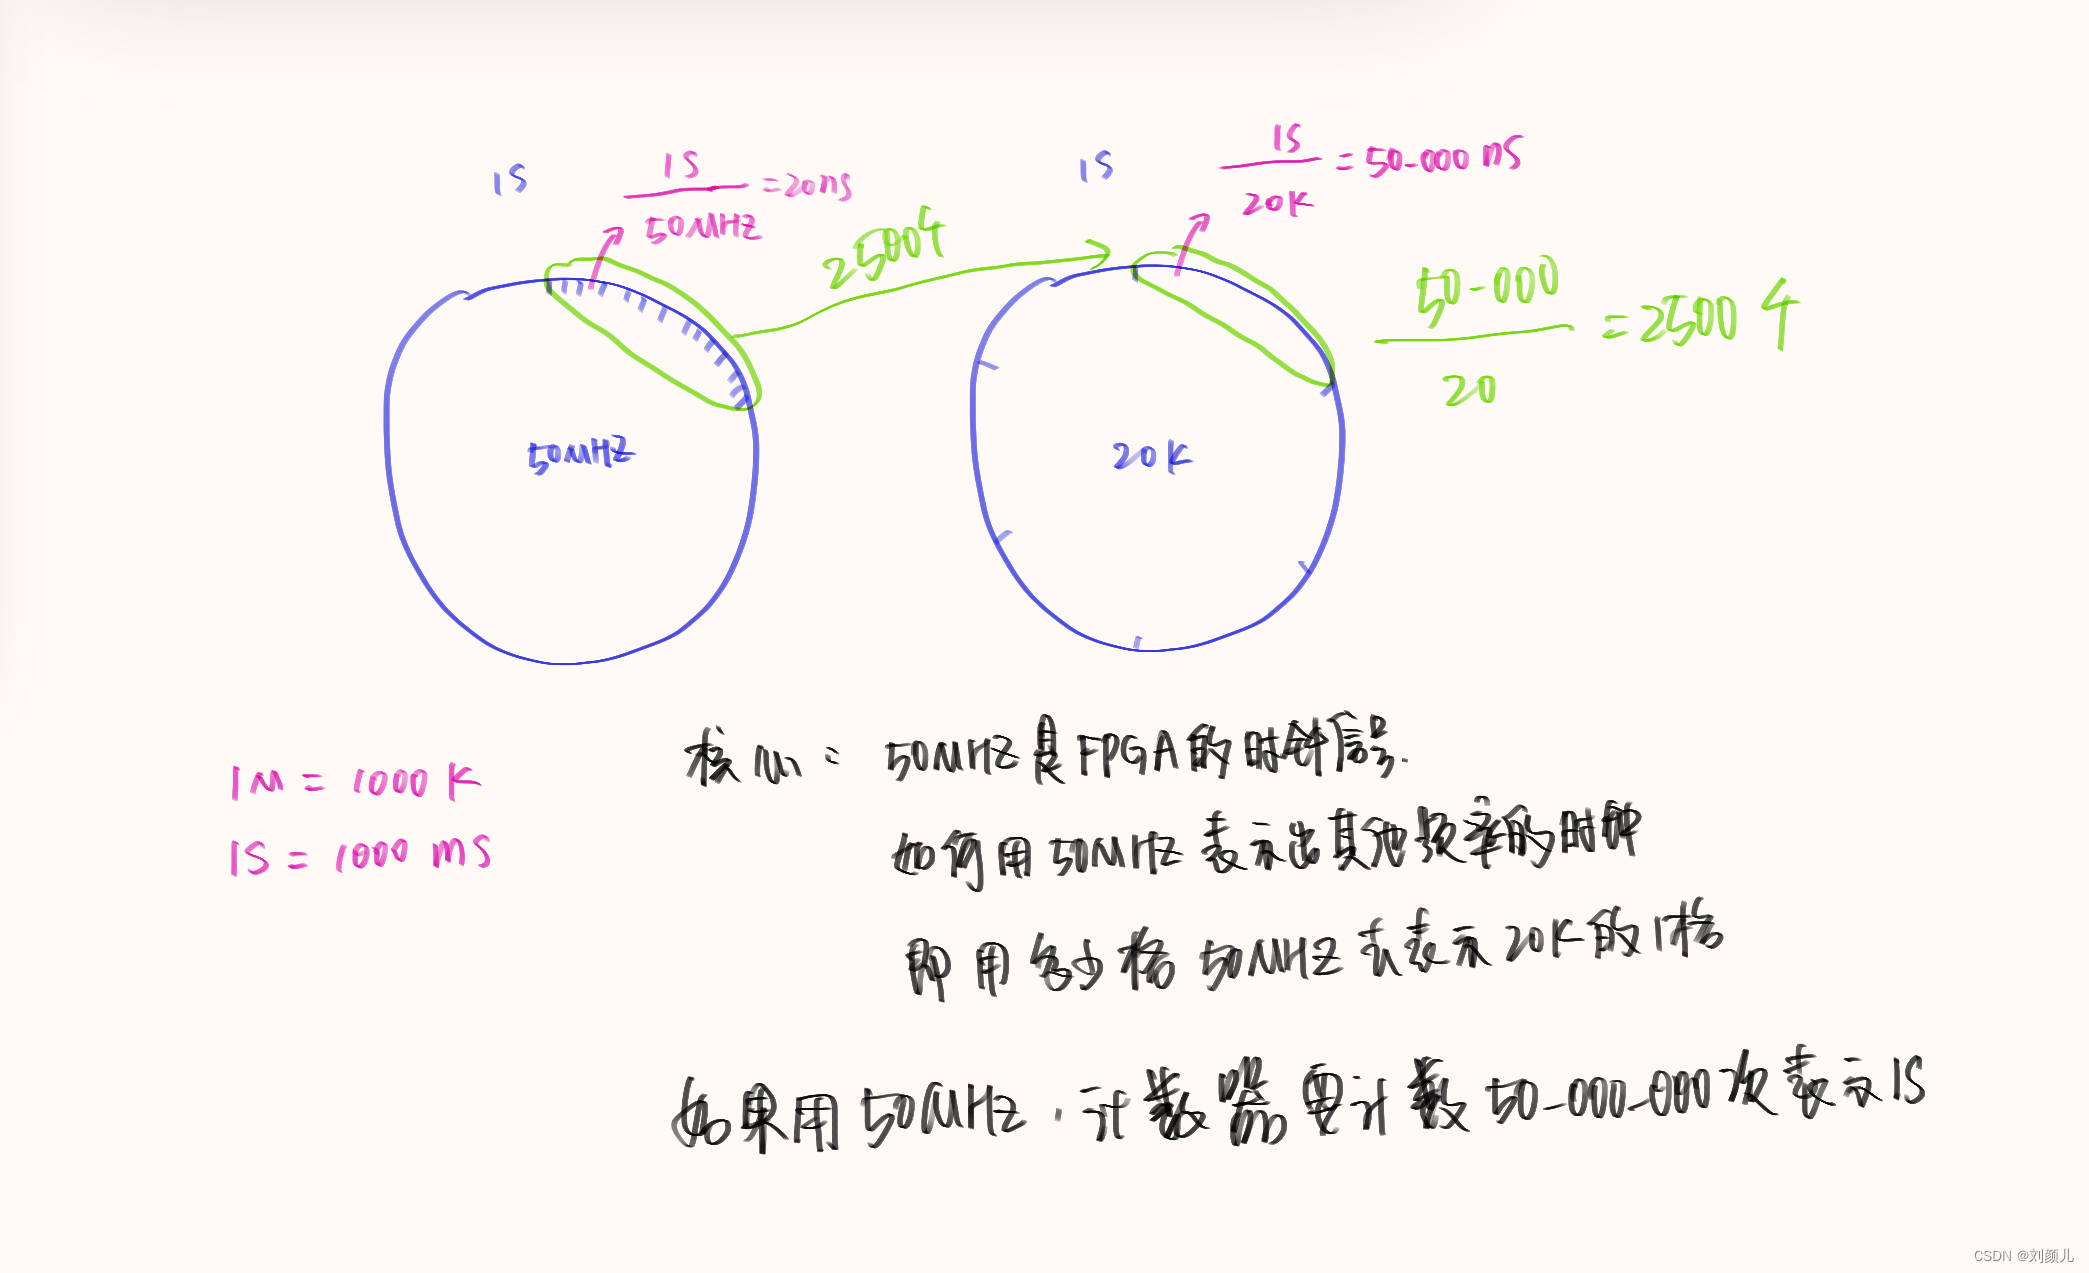 1S
1S
50MHZ
=20ns
25004
1S
1S
20K
=50-000 ns
50-000
20
=2500个
50MHZ
20K
1M = 1000 K
1S = 1000 ms
核心: 50MHZ是FPGA的时钟信号.
如何用50MHZ表示出其他频率的时钟
即用多少格50MHZ去表示20K的1格
如果用50MHZ.计数器要计数50-000-000次表示1S
CSDN @刘颜儿